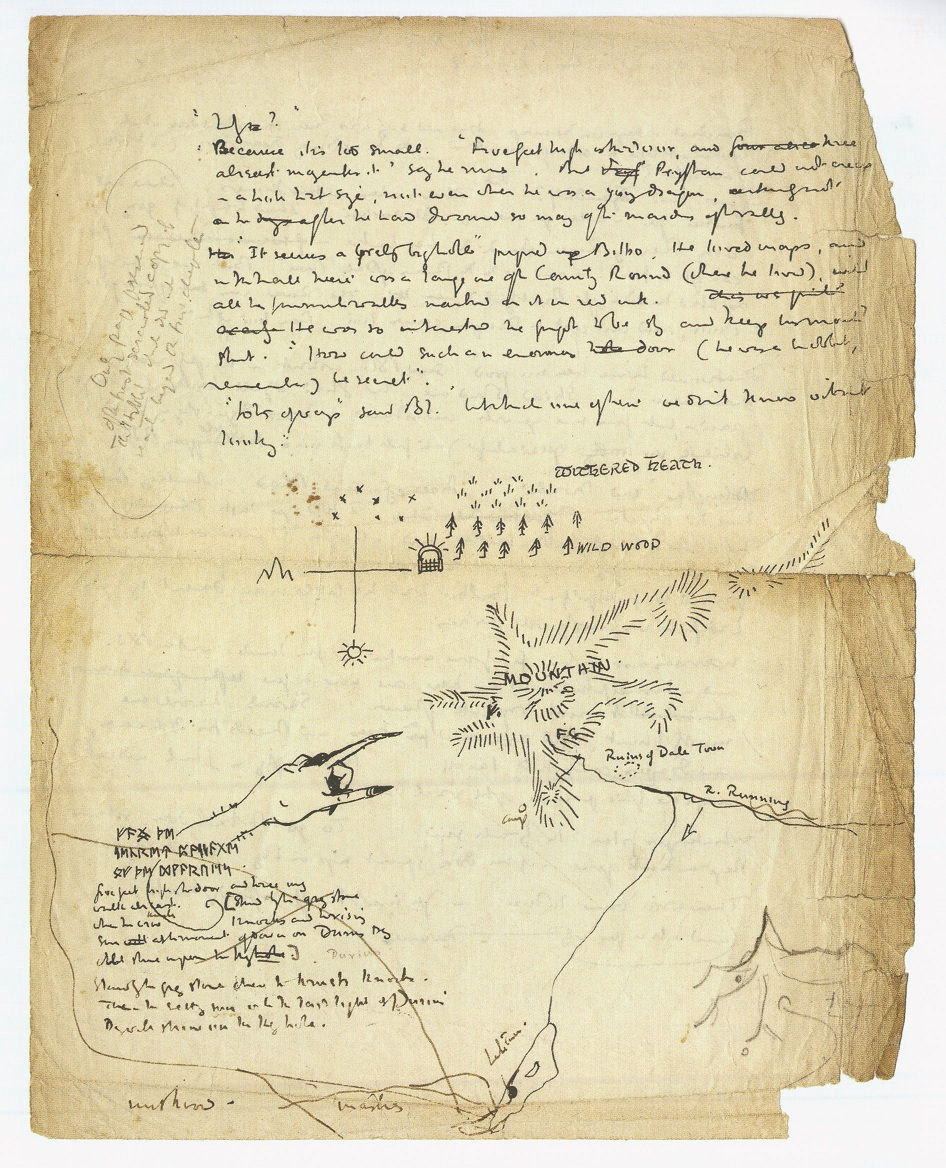 Because it is too small. "Five feet high is the door, and three
abreast may enter it" say the runes. But Pryftan could not creep
in a hole that size, not even when he was a young dragon, certainly not
after he had devoured so many of the maidens of the valley.
"It seems a great big hole" piped up Bilbo. He loved maps, and
in the hall there was a large one of the Country Round (where he lived), with
all his favourite walks marked on it in red ink.
He was so interested he forgot to be shy and keep his mouth
shut. "How could such an enormous door (he was a hobbit,
remember) be secret".
"Lots of ways" said Bl. but which one of them we don't know without
looking.
One page
WITHERED HEATH.
WILD WOOD
MOUNTAIN
F.G.
Ruins of Dale Town
R. Running
camp
ᚩᚠ ᚦᛖ ᛞᚹᚨᚱᚢᛖᛋ
five feet high is the door and three may
walk abreast. [Stand by the grey stone
when the crow knocks and the rising
sun at the moment of dawn on Durins Day
will shine upon the keyhole.]
Durin
Stand by the grey stone when the thrush knocks.
Then the setting sun with the last light of Durins
Day will shine on the key hole.
Lake Town.
mirkwood.
marshes